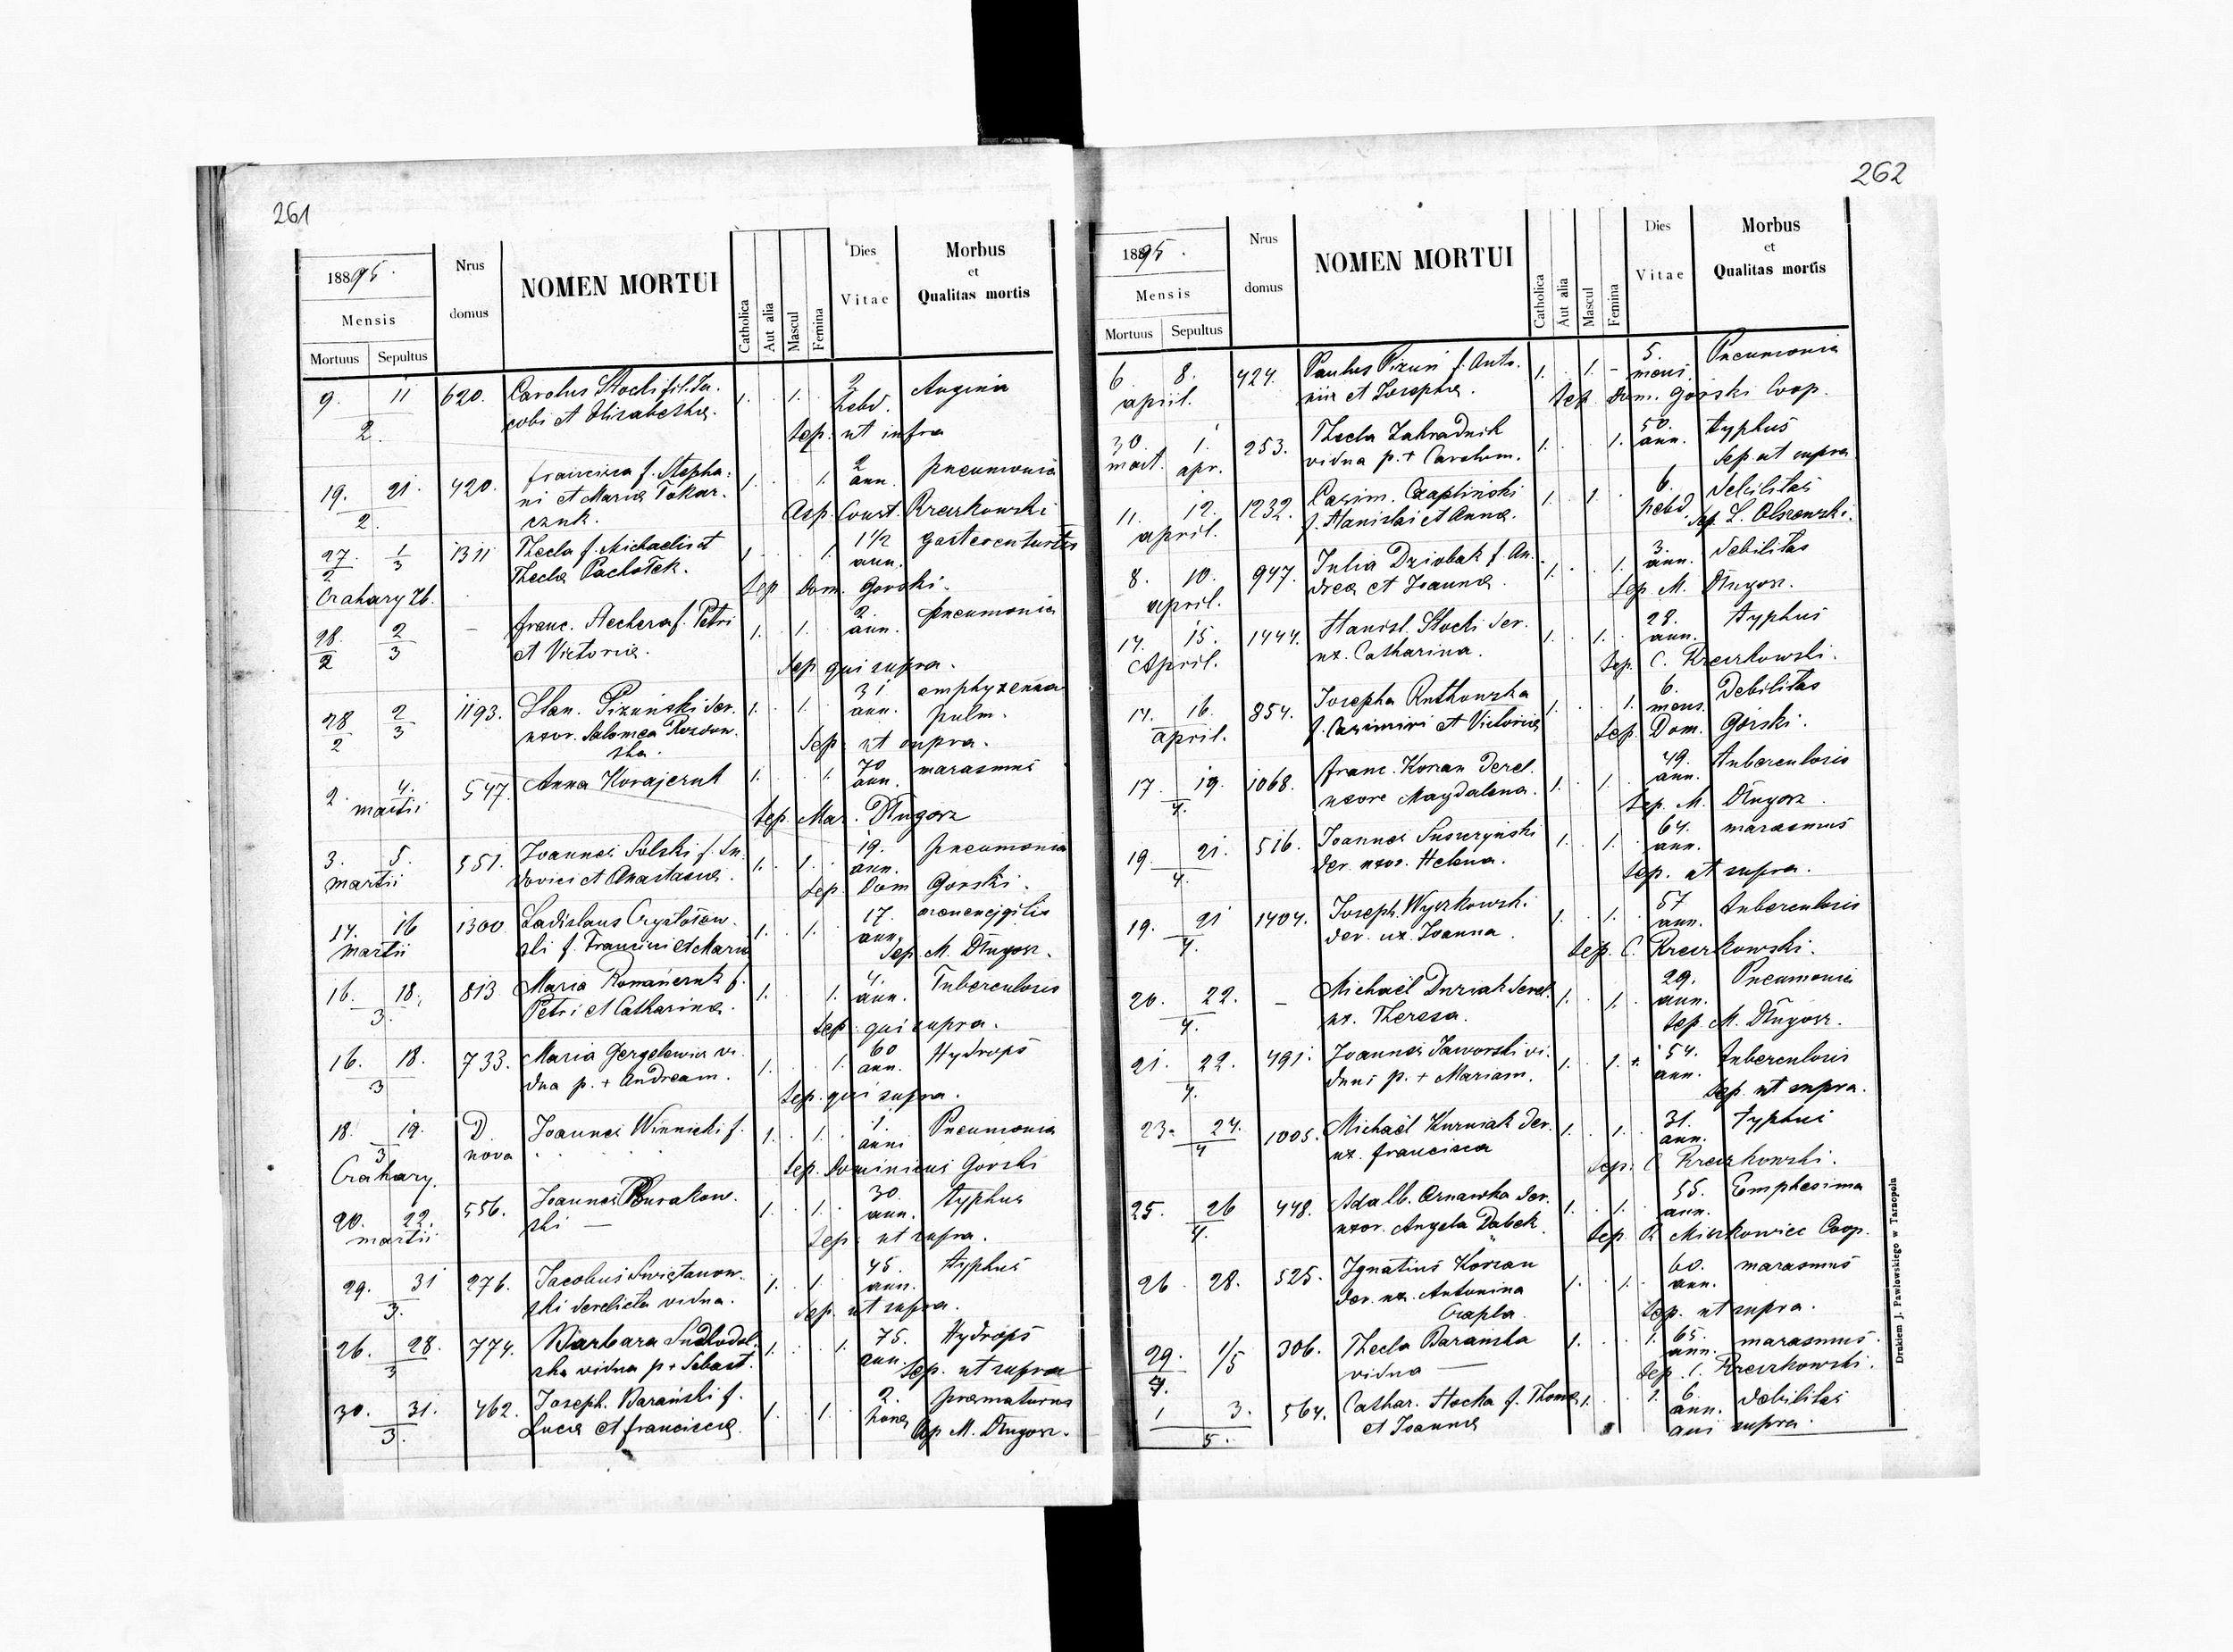 261
1895.
Mensis
Mortuus Sepultus
Nrus
domus
NOMEN MORTUI
Catholica
Aut alia
Mascul
Femina
Dies
Vitae
Morbus
et
Qualitas mortis
9. 11 620. Carolus Stocki fil. Ja- 1. 1. 2 Angina
2. cobi et Elisabetha. hebd.
Sep. ut infra
19. 21. 420. francisca f. Stepha- 1. 1. 2 pneumonia
2. ni et Maria Tokar- ann.
czuk. Sep. Const. Kreczkowski
27/2 1/3 1311 Thecla f. Michaelis et 1. 1. 1 1/2
Thecla Pachołek. ann.
Czahary Zb. Sep Dom. Gorski.
28/2 2/3 – franc. Stechera f. Petri 1. 1. 2. pneumonia
et Victoria. ann.
Sep qui supra.
28/2 2/3 1193. Stan. Pizuński der. 1. 1. 31 emphyzema
uxor. Salomea Rozdow- ann. pulm.
ska. Sep. ut supra.
2. 4. 547. Anna Korajczuk 1. 1. 70 marasmus
martii ann.
Sep. Mar. Długosz
3. 5. 551. Joannes Solski f. Lu- 1. 1. 19. pneumonia
martii dovici et Anastasia. ann.
Sep. Dom Gorski.
14. 16 1300 Ladislaus Crystoföw- 1. 1. 17.
martii ski f. Francisci et Maria ann.
Sep. M. Długosz.
16. 18. 813 Maria Romańczuk f. 1. 1. 4. Tuberculosis
3. Petri et Catharina. ann.
Sep. qui supra.
16. 18. 733. Maria Gergelewicz vi- 1. 1. 60 Hydrops
3 dua p. + Andream. ann.
Sep. qui supra.
18. 19. D. Joannes Winnicki f. 1. 1. 1. Pneumonia
3 nova anni
Czahary. Sep. Dominicus Gorski
20. 22. 556. Joannes Burakow- 1. 1. 30. typhus
martii ski — ann.
Sep. ut supra.
29. 31 276. Jacobus Swiętanow- 1. 1. 45. typhus
3. ski derelicta vidua. ann.
Sep. ut supra.
26. 28. 774. Barbara Suchodol- 1. 1. 75. Hydrops
3 ska vidua p + Sebast. ann.
Sep. ut supra
30. 31. 462. Joseph. Barański f. 1. 1. 2. praematurus
3. Luca et francisca. hora
Sep M. Długosz.
262
1895.
Mensis
Mortuus Sepultus
Nrus
domus
NOMEN MORTUI
Catholica
Aut alia
Mascul
Femina
Dies
Vitae
Morbus
et
Qualitas mortis
6. 8. 424. Paulus Pizuń f. Anto- 1. 1. – 5. Pneumonia
april. nii et Josepha. mens.
Sep Dom. Górski Coop.
30. 1. 253. Thecla Zahradnik 1. 1. 50. typhus
mart. apr. vidua p. + Carolum. ann.
Sep. ut supra
11. 12. 1232. Casim. Czapliński 1. 1. 6. debilitas
april. f. Stanislai et Anna. hebd.
Sep. L. Olszewski.
8. 10. 947. Julia Dziobak f. An- 1. 1. 3. debilitas
april. drea et Joanna. ann.
Sep. M. Długosz.
14. 15. 1444. Stanisl. Stocki der. 1. 1. 28. typhus
April. ux. Catharina. ann.
Sep. C. Kreczkowski.
14. 16. 854. Josepha Rutkowska 1. 1. 6. Debilitas
april. f. Casimiri et Victoria mens.
Sep. Dom. Górski.
17. 19. 1068. franc. Korzan derel. 1. 1. 49. tuberculosis
4. uxore Magdalena. ann.
Sep. M. Długosz.
19. 21. 516. Joannes Suszczyński 1. 1. 64. marasmus
4. der. uxor. Helena. ann.
Sep. ut supra.
19. 21 1404. Joseph. Wyczkowski 1. 1. 57 tuberculosis
4. der. ux. Joanna. ann.
Sep. C. Kreczkowski.
20. 22. – Michaël Duziak derel. 1. 1. 29. Pneumonia
4. ux. Theresa. ann.
Sep. M. Długosz.
21. 22. 491. Joannes Jaworski vi- 1. 1. 54. tuberculosis
4. duus p. + Mariam. ann.
Sep. ut supra.
23. 24. 1005. Michaël Kurniak der. 1. 1. 31. typhus
4 ux. francisca ann.
Sep. C Kreczkowski.
25. 26 448. Adalb. Arnawka der. 1. 1. 55. Emphesima
4. uxor. Angela Dąbek. ann.
Sep. R Mieszkowiec Coop.
26 28. 525. Ignatius Korzan 1. 1. 60. marasmus
der. ux. Antonina ann.
Czapla. Sep. ut supra.
29. 1/5 306. Thecla Barańska 1. 1. 65. marasmus.
4. vidua — ann.
Sep. C. Kreczkowski.
1 3. 564. Cathar. Stocka f. Thoma 1. 1. 6. debilitas
5. et Joanna ann.
qui supra.
Drukiem J. Pawłowskiego w Tarnopolu